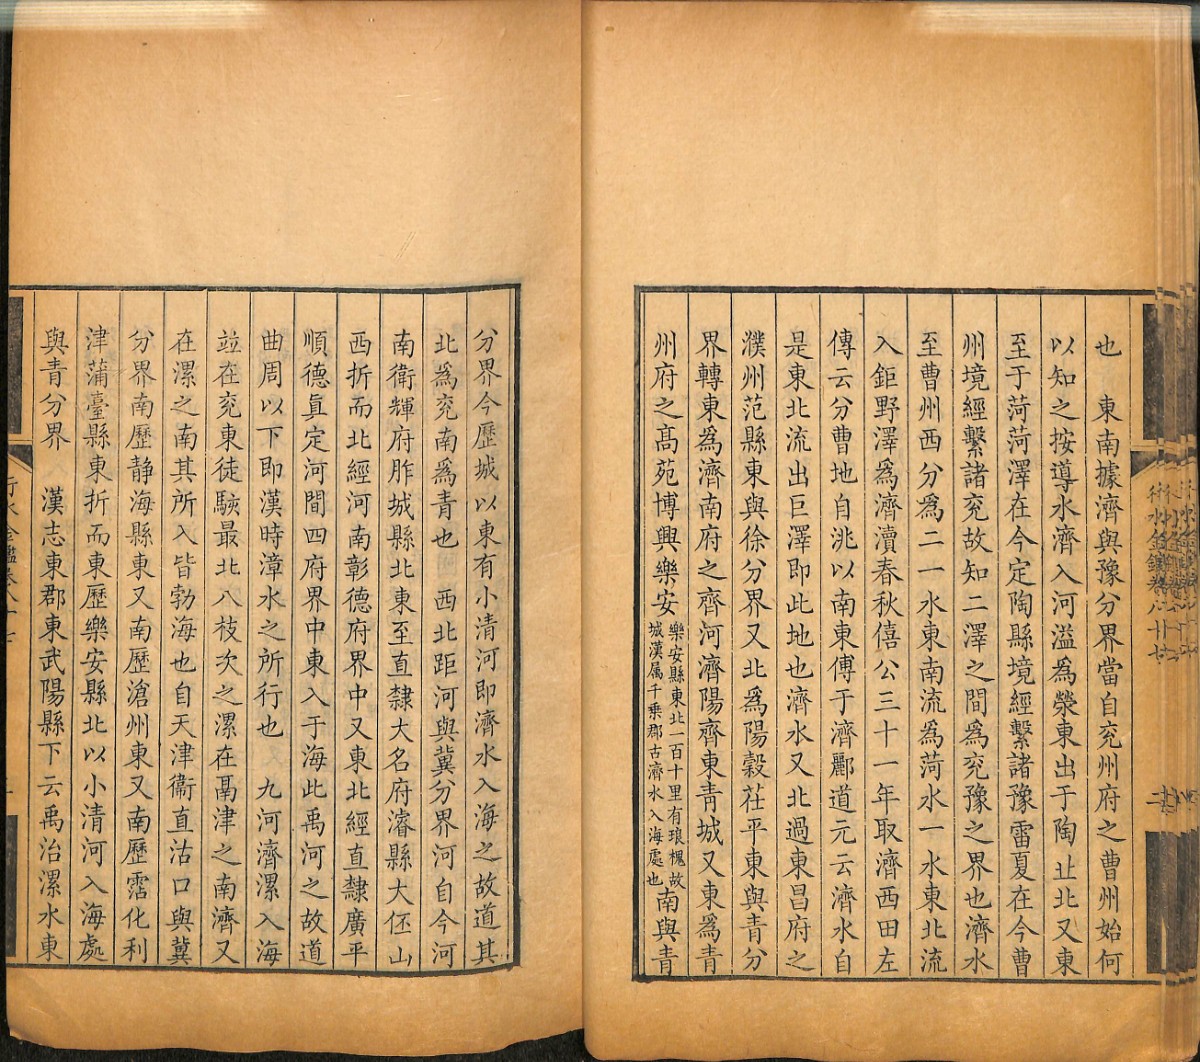 也　東南據濟與豫分界當自兖州府之曹州始何
以知之按導水濟入河溢爲滎東出于陶丘北又東
至于菏菏澤在今定陶縣境經繫諸豫雷夏在今曹
州境經繫諸兖故知二澤之間爲兖豫之界也濟水
至曹州西分爲二一水東南流爲菏水一水東北流
入鉅野澤爲濟瀆春秋僖公三十一年取濟西田左
傳云分曹地自洮以南東傅于濟酈道元云濟水自
是東北流出巨澤即此地也濟水又北過東昌府之
濮州范縣東與徐分界又北爲陽穀茌平東與青分
界轉東爲濟南府之齊河濟陽齊東青城又東爲青
州府之髙苑博興樂安樂安縣東北一百十里有琅槐故城漢属千乗郡古濟水入海處也南與青
分界今歷城以東有小清河即濟水入海之故道其
北爲兖南爲青也　西北距河與冀分界河自今河
南衛輝府胙城縣北東至直隸大名府濬縣大伾山
西折而北經河南彰德府界中又東北經直隸廣平
順德真定河間四府界中東入于海此禹河之故道
曲周以下即漢時漳水之所行也　九河濟漯入海
竝在兖東徒駭最北八枝次之漯在鬲津之南濟又
在漯之南其所入皆勃海也自天津衞直沽口與冀
分界南歷静海縣東又南歷滄州東又南歷霑化利
津蒲臺縣東折而東歷樂安縣北以小清河入海處
與青分界　漢志東郡東武陽縣下云禹治漯水東